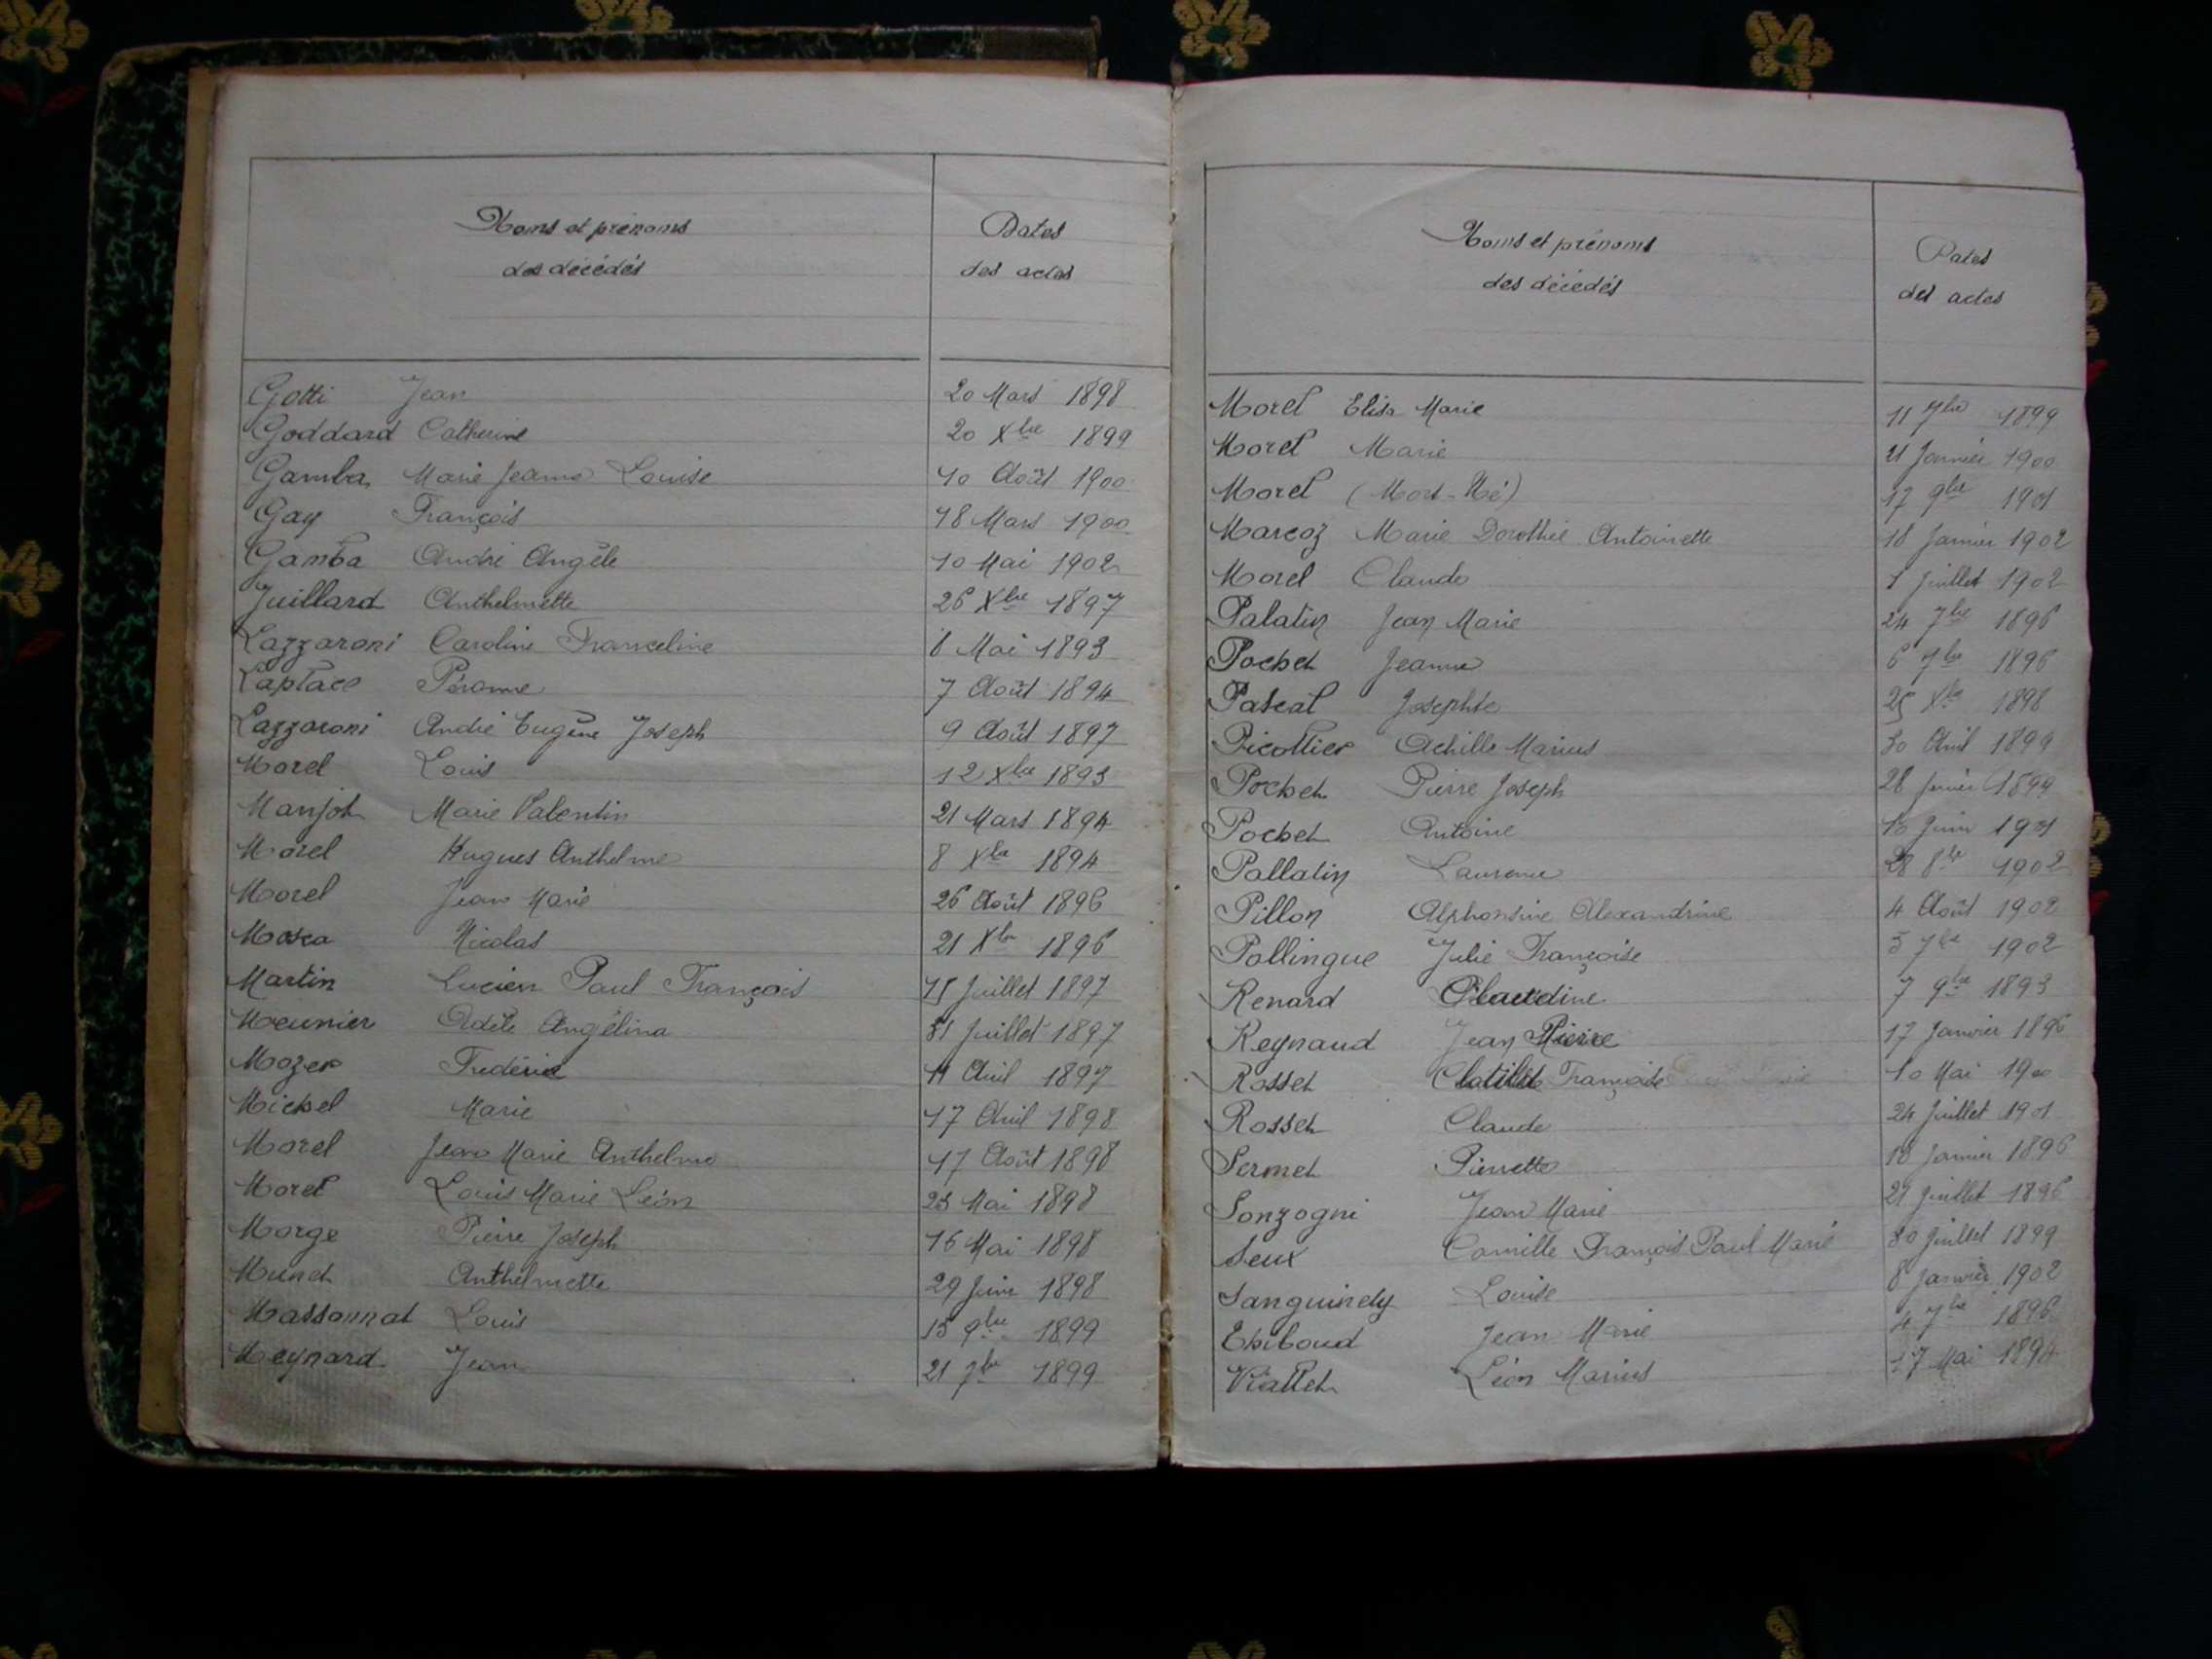 Noms et prénoms
des décédés
Dates
des actes
Gotti Jean 20 Mars 1898
Goddard Catherine 20 Xbre 1899
Gamba Marie Jeanne Louise 10 Août 1900
Gay François 18 Mars 1900
Gamba André Angèle 10 Mai 1902
Juillard Anthelmette 26 Xbre 1897
Lazzaroni Caroline Franceline 8 Mai 1893
Laplace Péronne 7 Août 1894
Lazzaroni André Eugène Joseph 9 Août 1897
Morel Louis 12 Xbre 1893
Manjot Marie Valentin 21 Mars 1894
Morel Hugues Anthelme 8 Xbre 1894
Morel Jean Marie 26 Août 1896
Mosca Nicolas 21 Xbre 1896
Martin Lucien Paul François 15 Juillet 1897
Meunier Adèle Angélina 31 Juillet 1897
Mozer Frédéric 11 Avril 1897
Michel Marie 17 Avril 1898
Morel Jean Marie Anthelme 17 Août 1898
Morel Louis Marie Léon 23 Mai 1898
Morge Pierre Joseph 16 Mai 1898
Munet Anthelmette 29 Juin 1898
Massonnat Louis 13 9bre 1899
Meynard Jean 21 7bre 1899
Noms et prénoms
des décédés
Dates
des actes
Morel Elisa Marie 11 7bre 1899
Morel Marie 21 Janvier 1900
Morel (Mort-Né) 17 9bre 1901
Marcoz Marie Dorothée Antoinette 18 Janvier 1902
Morel Claude 1 Juillet 1902
Palatin Jean Marie 24 7bre 1896
Pochet Jeanne 6 7bre 1896
Pascal Josephte 25 Xbre 1898
Picollier Achille Marius 30 Avril 1899
Pochet Pierre Joseph 28 Janvier 1899
Pochet Antoine Juin 1901
Pallatin Laurence 28 8bre 1902
Pillon Alphonsine Alexandrine 4 Août 1902
Pollingue Julie Françoise 3 7bre 1902
Renard Claudine 7 9bre 1893
Reynaud Jean Pierre 17 Janvier 1896
Rosset Clotilde Françoise 10 Mai 1900
Rosset Claude 24 Juillet 1901
Sermet Pierrette 18 Janvier 1896
Sonzogni Jean Marie 21 Juillet 1896
Seux Camille François Paul Marie 30 Juillet 1899
Sanguinety Louise 8 Janvier 1902
Thiboud Jean Marie 4 7bre 1896
Viallet Léon Marius 17 Mai 1894